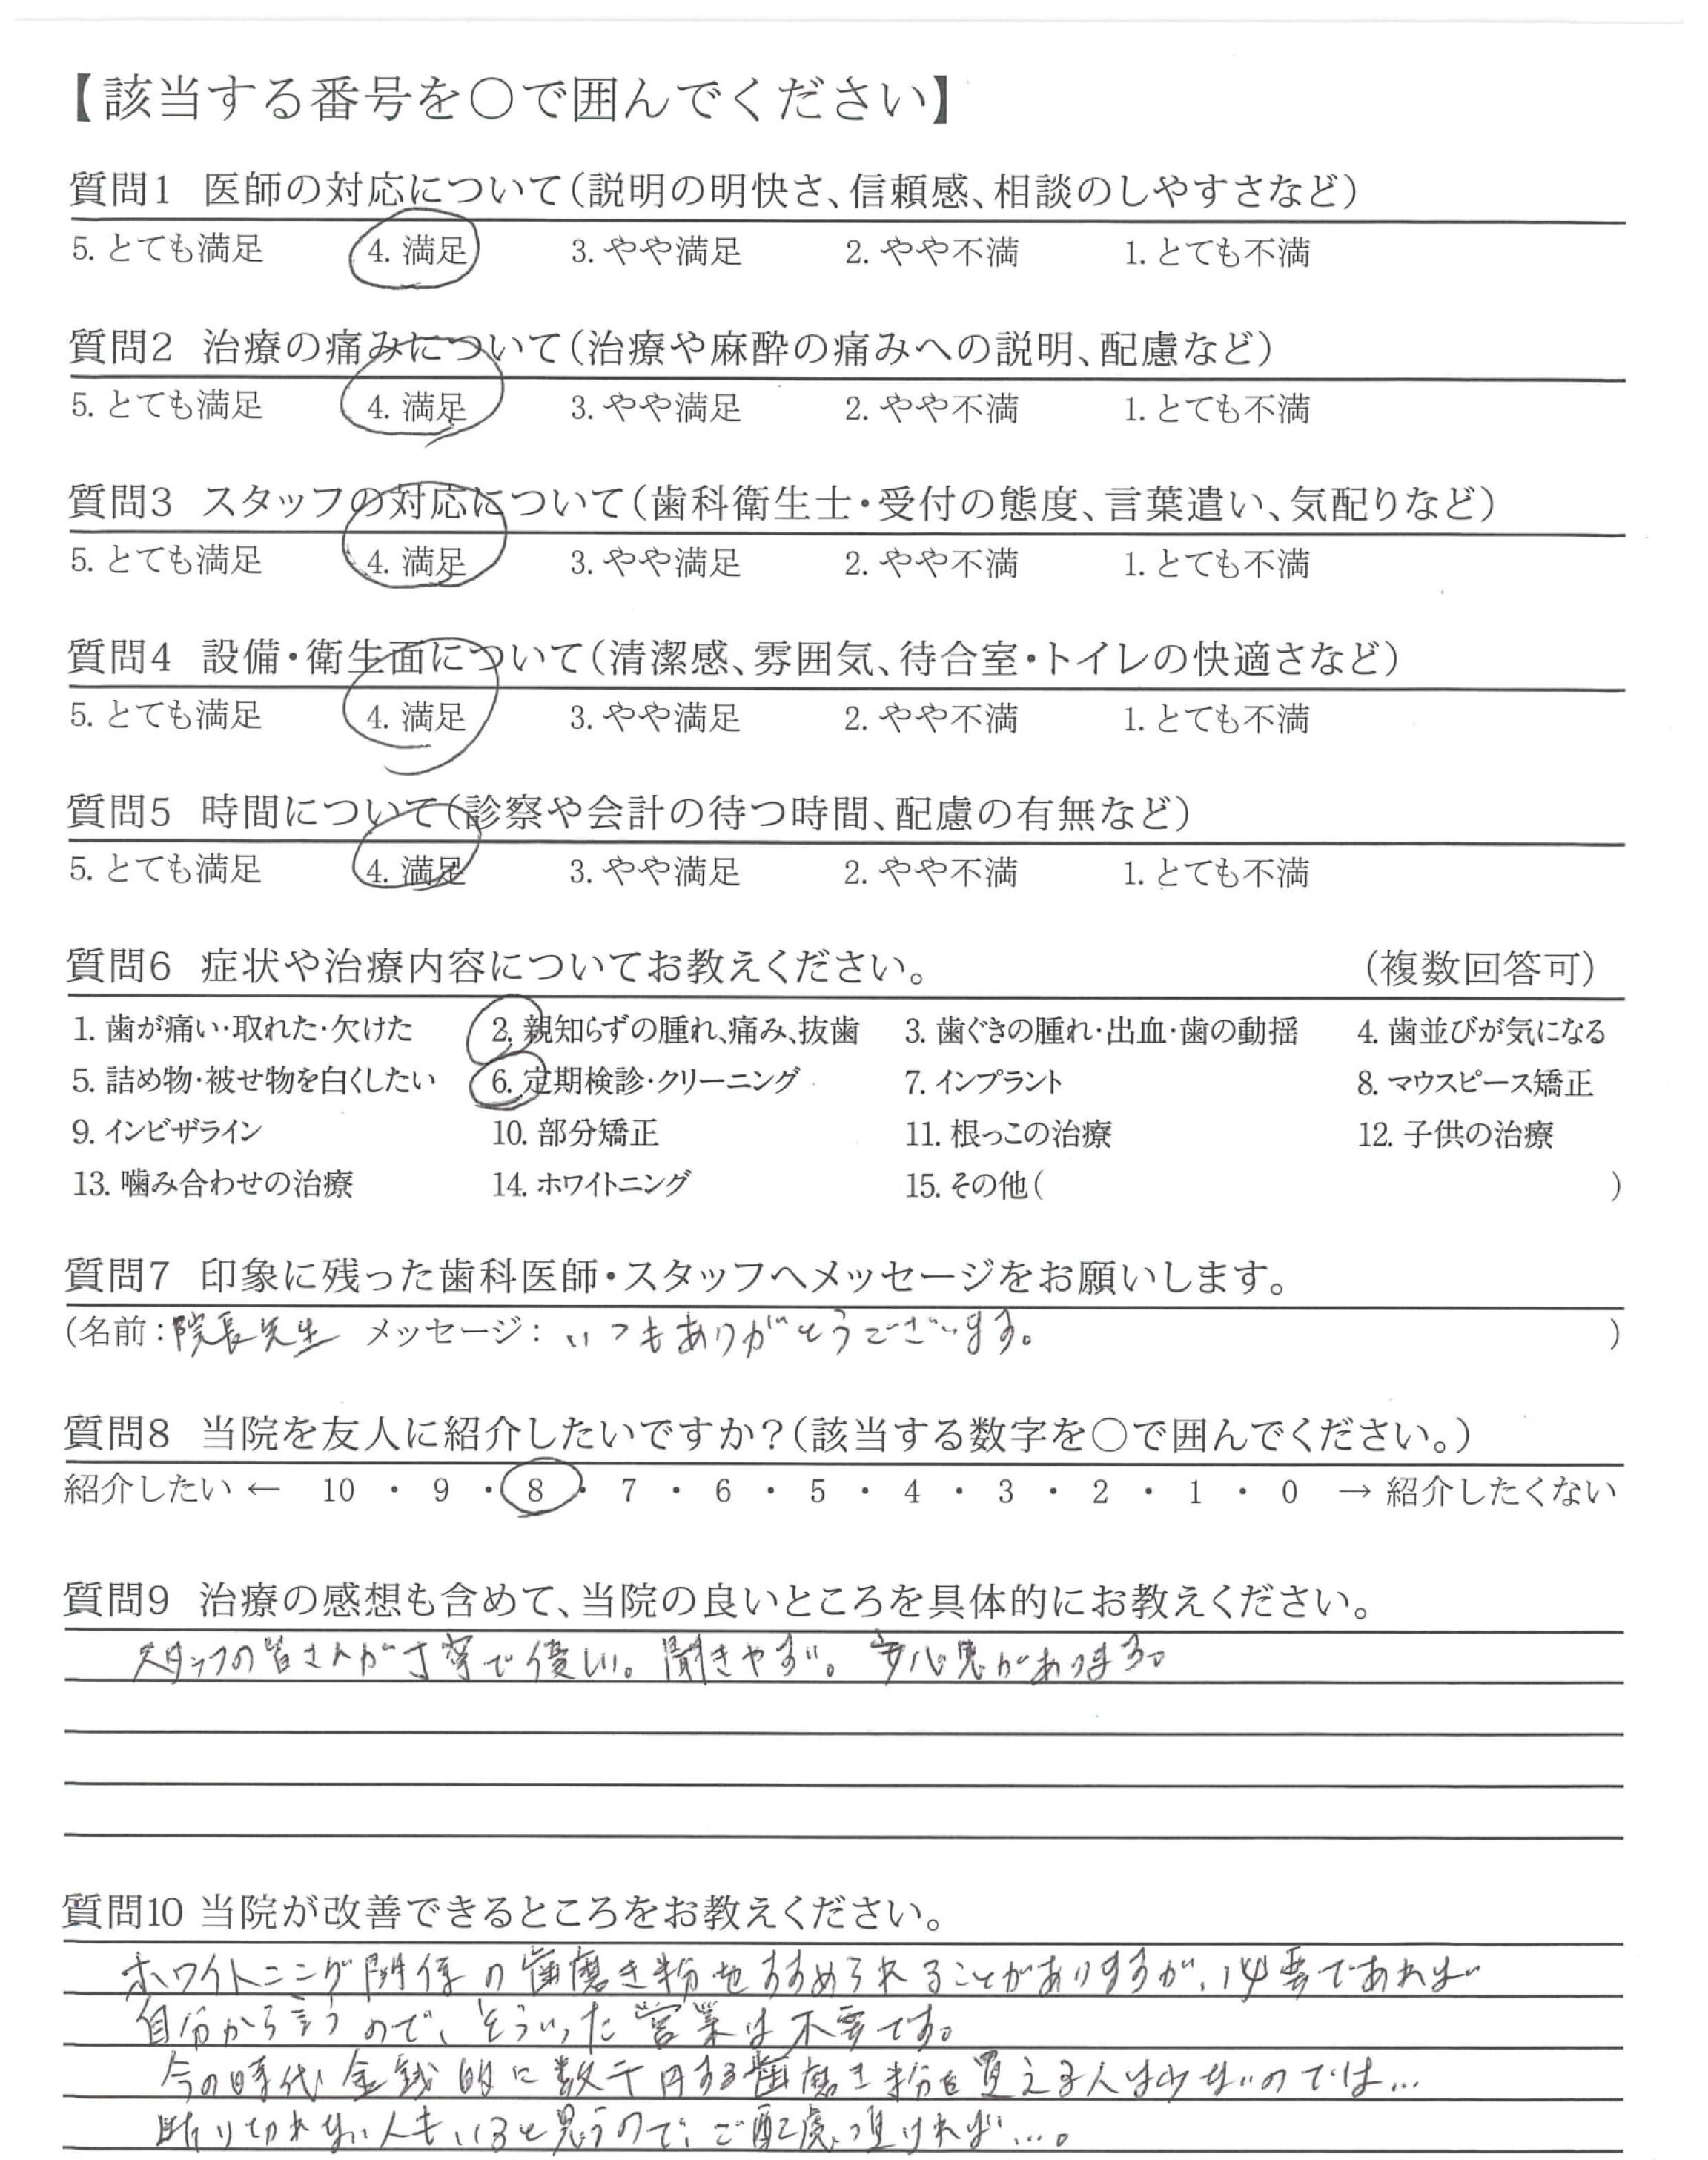 【該当する番号を○で囲んでください】
質問1 医師の対応について(説明の明快さ、信頼感、相談のしやすさなど)
5. とても満足 4. 満足 3. やや満足 2. やや不満 1. とても不満
質問2 治療の痛みについて(治療や麻酔の痛みへの説明、配慮など)
5. とても満足 4. 満足 3. やや満足 2. やや不満 1. とても不満
質問3 スタッフの対応について(歯科衛生士・受付の態度、言葉遣い、気配りなど)
5. とても満足 4. 満足 3. やや満足 2. やや不満 1. とても不満
質問4 設備・衛生面について(清潔感、雰囲気、待合室・トイレの快適さなど)
5. とても満足 4. 満足 3. やや満足 2. やや不満 1. とても不満
質問5 時間について(診察や会計の待つ時間、配慮の有無など)
5. とても満足 4. 満足 3. やや満足 2. やや不満 1. とても不満
質問6 症状や治療内容についてお教えください。 (複数回答可)
1. 歯が痛い・取れた・欠けた 2. 親知らずの腫れ、痛み、抜歯 3. 歯ぐきの腫れ・出血・歯の動揺 4. 歯並びが気になる
5. 詰め物・被せ物を白くしたい 6. 定期検診・クリーニング 7. インプラント 8. マウスピース矯正
9. インビザライン 10. 部分矯正 11. 根っこの治療 12. 子供の治療
13. 噛み合わせの治療 14. ホワイトニング 15. その他( )
質問7 印象に残った歯科医師・スタッフへメッセージをお願いします。
(名前：院長先生 メッセージ：いつもありがとうございます。 )
質問8 当院を友人に紹介したいですか？(該当する数字を○で囲んでください。)
紹介したい ← 10 ・ 9 ・ 8 ・ 7 ・ 6 ・ 5 ・ 4 ・ 3 ・ 2 ・ 1 ・ 0 → 紹介したくない
質問9 治療の感想も含めて、当院の良いところを具体的にお教えください。
スタッフの皆さんが丁寧で優しい。聞きやすい。安心感があります。
質問10 当院が改善できるところをお教えください。
ホワイトニング関係の歯磨き粉をすすめられることがありますが、必要であれば
自分から言うので、そういった営業は不要です。
今の時代 金銭的に数千円する歯磨き粉を買える人は少ないのでは…
断り切れない人もいると思うので、ご配慮頂ければ…。